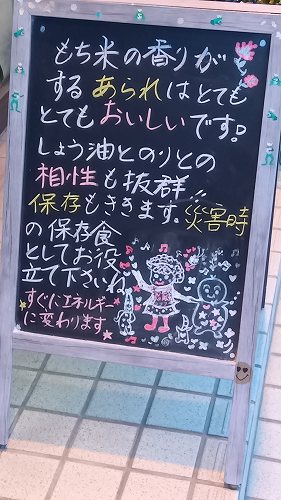 もち米の香りが
する あられはとても
とてもおいしいです。
しょう油とのりとの
相性も抜群!!
保存もききます。災害時
の保存食
としてお役
立て下さいね
すぐにエネルギー
に変わります。